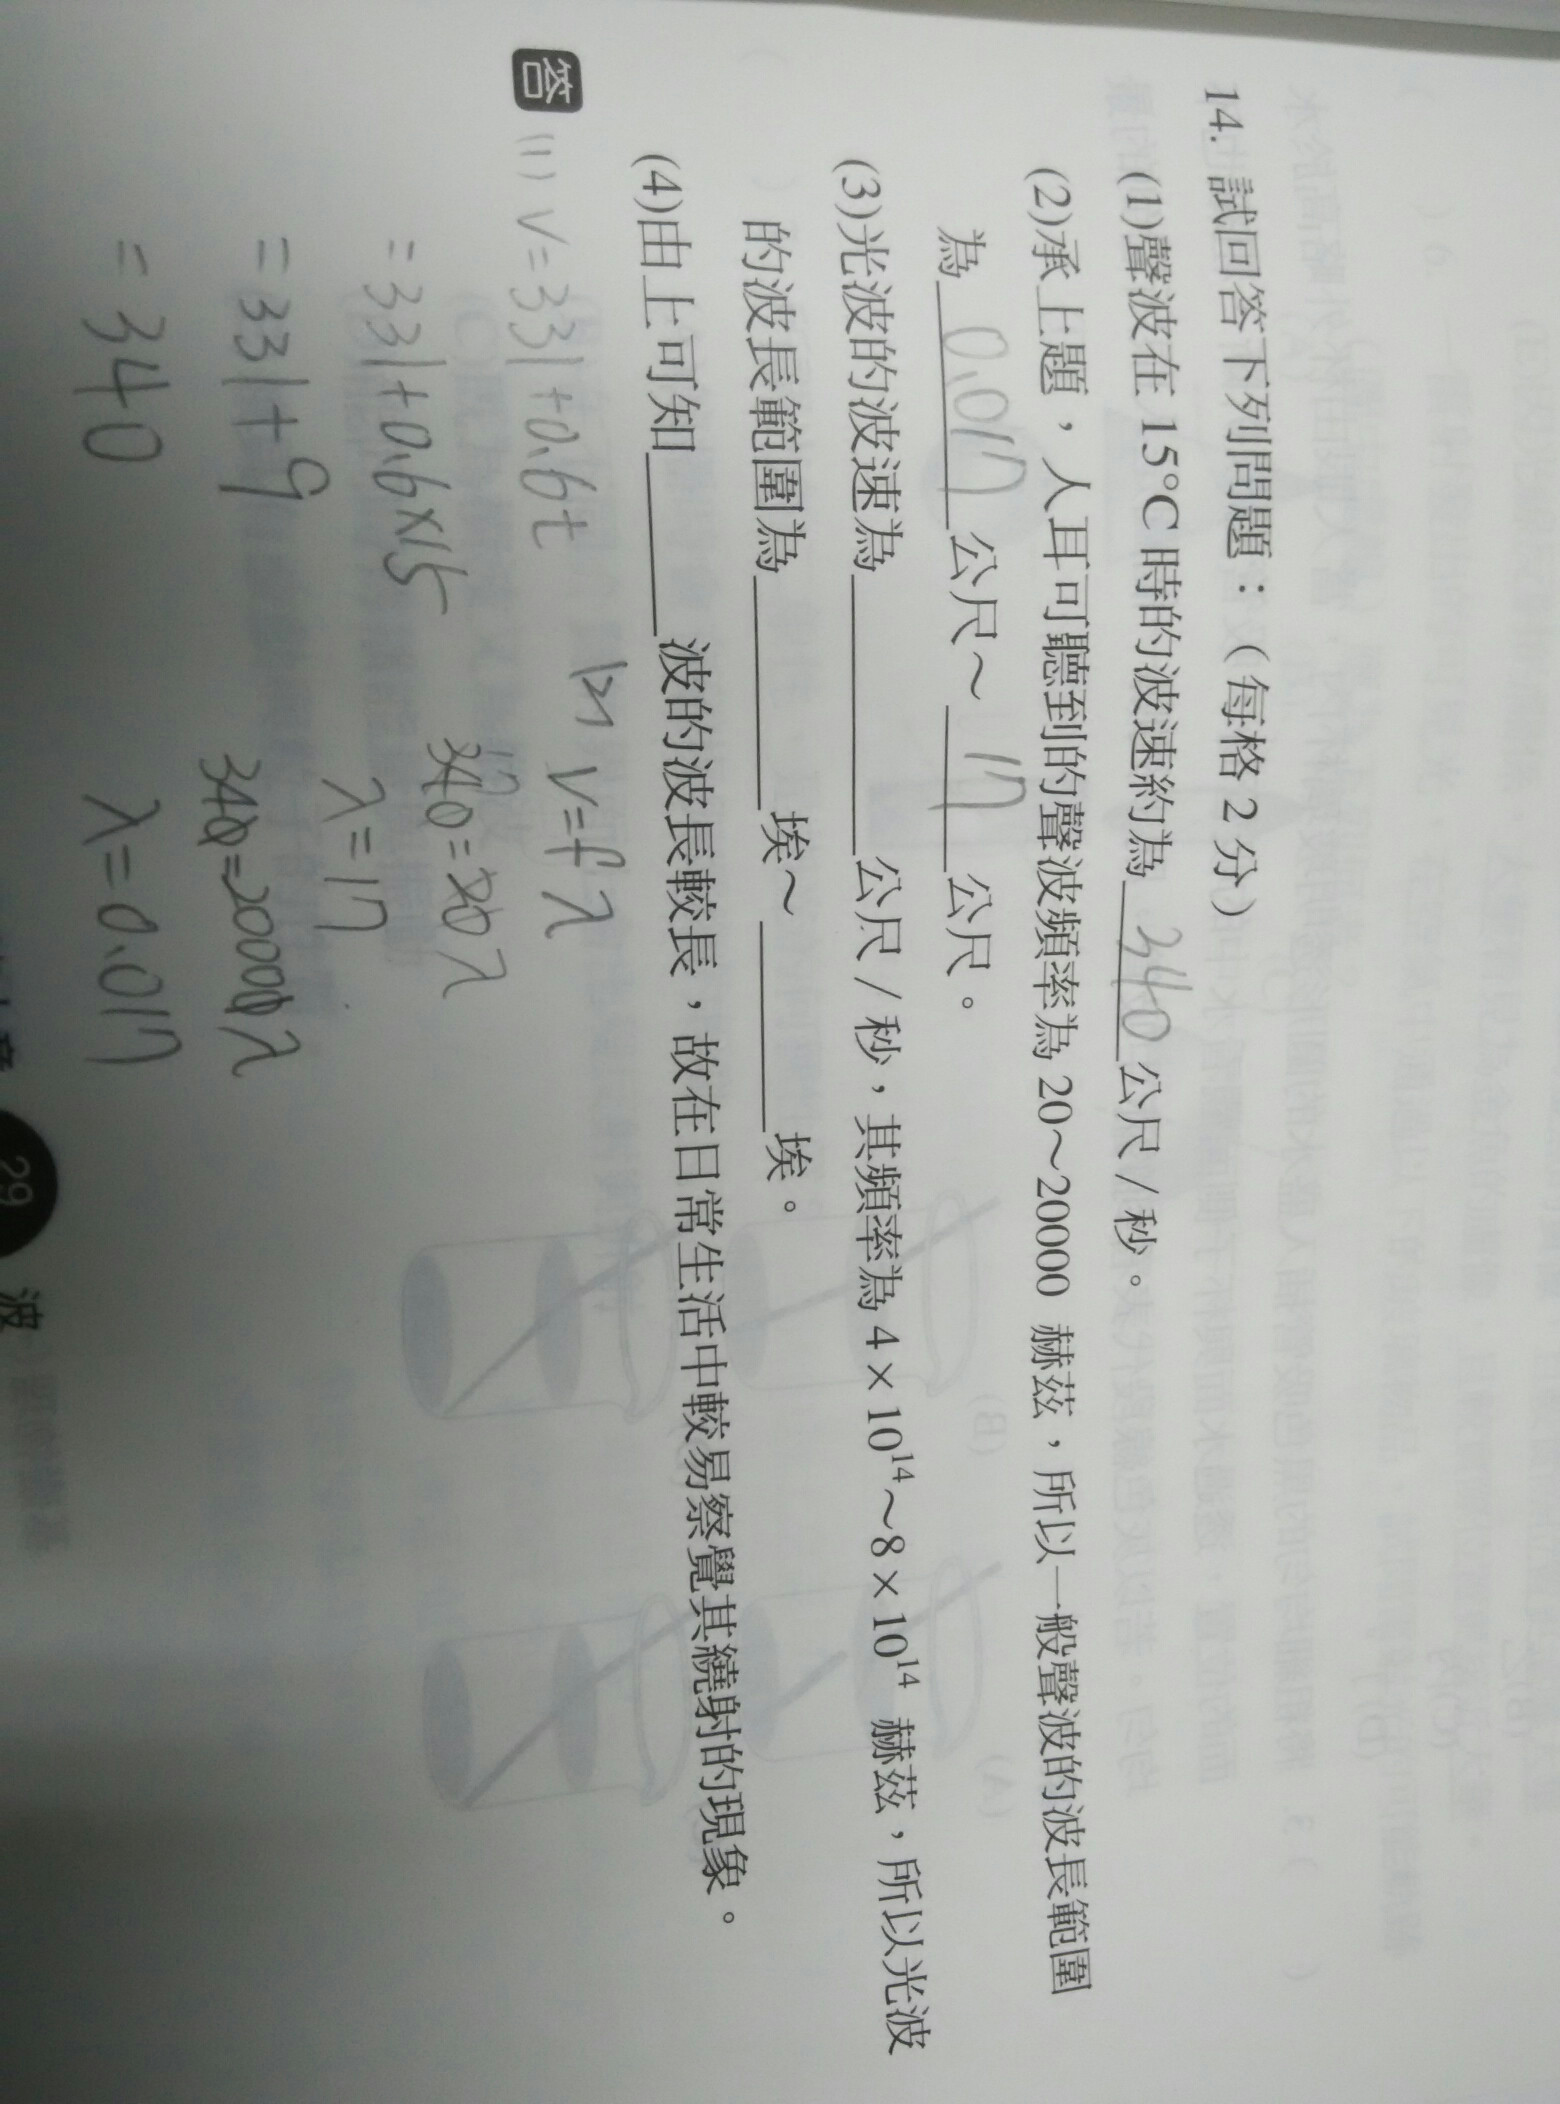 14. 試回答下列問題：（每格 2 分）
(1)聲波在 15°C 時的波速約為 340 公尺 / 秒。
(2)承上題，人耳可聽到的聲波頻率為 20～20000 赫茲，所以一般聲波的波長範圍
為 0.017 公尺～ 17 公尺。
(3)光波的波速為 公尺 / 秒，其頻率為 4 × 10¹⁴～8 × 10¹⁴ 赫茲，所以光波
的波長範圍為 埃～ 埃。
(4)由上可知 波的波長較長，故在日常生活中較易察覺其繞射的現象。
答 (1) V=331+0.6t
=331+0.6×15
=331+9
=340
(2) V=fλ
340=20λ
λ=17
340=20000λ
λ=0.017
29 波